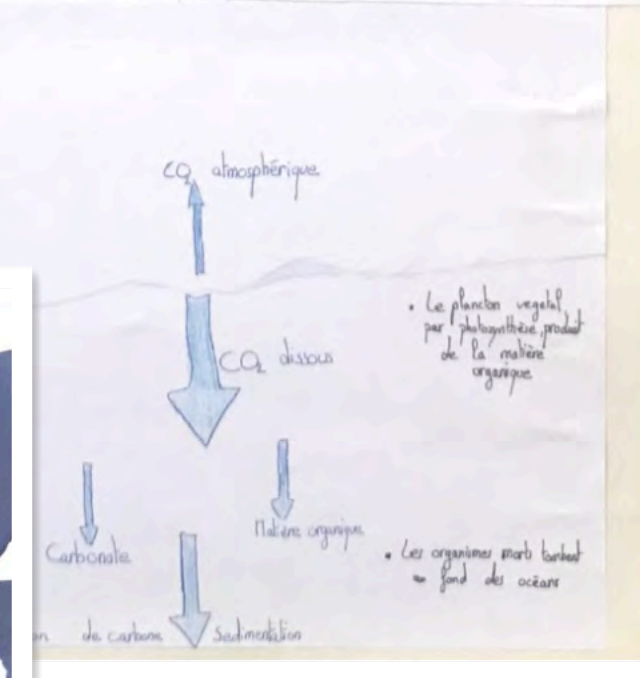 CO2 atmosphérique
• Le plancton vegetal
par photosynthèse, produit
de la matière
organique
CO2 dissous
Matière organique
Carbonate
• Les organismes morts tombent
fond des océans
de carbone
Sedimentation